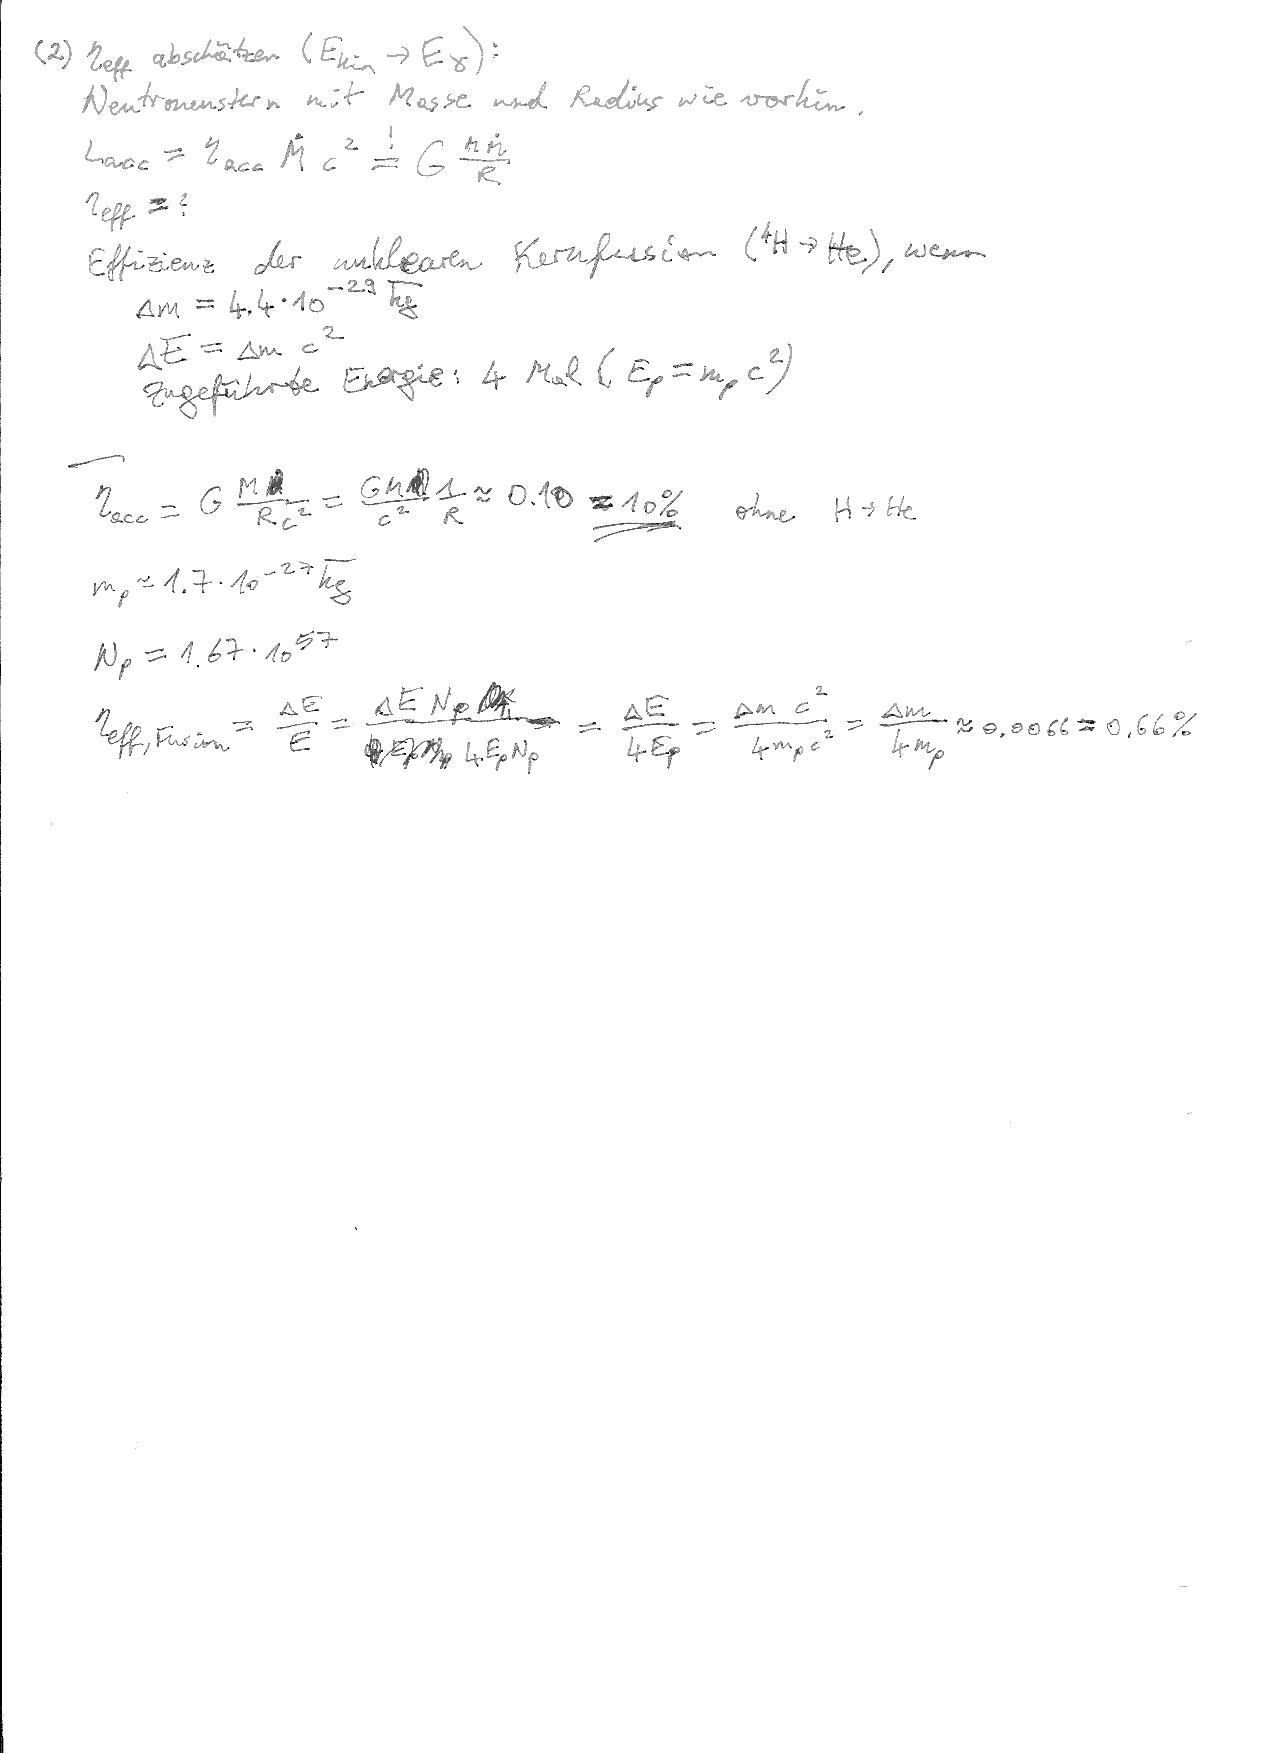 (2) η_eff abschätzen (E_kin → E_γ):
Neutronenstern mit Masse und Radius wie vorhin.
L_acc = η_acc Ṁ c² =! G MṀ/R
η_eff = ?
Effizienz der nuklearen Kernfusion (⁴H → He), wenn
Δm = 4.4·10⁻²⁹ kg
ΔE = Δm c²
Zugeführte Energie: 4 Mal (E_p = m_p c²)
η_acc = G M/(R c²) = GM/c² 1/R ≈ 0.10 = 10% ohne H → He
m_p ≈ 1.7·10⁻²⁷ kg
N_p = 1.67·10⁵⁷
η_eff,Fusion = ΔE/E = ΔE N_p/(4 E_p N_p) = ΔE/(4E_p) = Δm c²/(4m_p c²) = Δm/(4m_p) ≈ 0.0066 = 0.66%